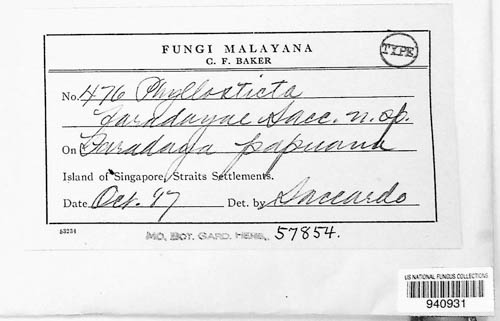 FUNGI MALAYANA
TYPE
C. F. BAKER
No. 476 Phyllosticta
Faradayae Sacc. n. sp.
On Faradaya papuana
Island of Singapore, Straits Settlements.
Date Oct. '17 Det. by Saccardo
53234
MO. BOT. GARD. HERB. 57854.
US NATIONAL FUNGUS COLLECTIONS
940931